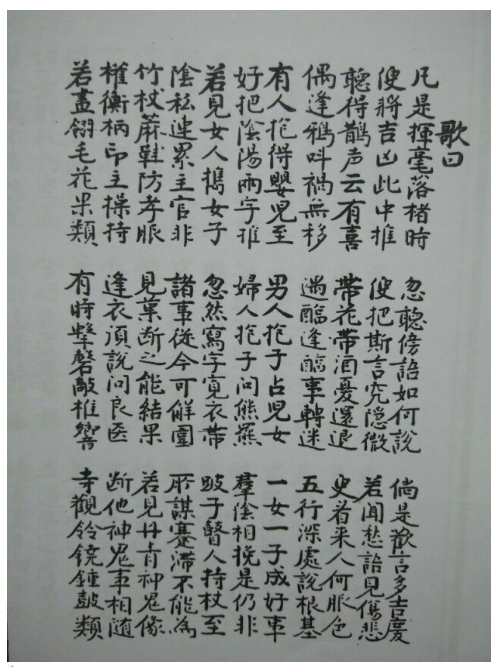 歌曰
凡是揮毫落楮時 忽聽傍語如何說 倘是歡言多吉慶
便將吉凶此中推 便把斯言究隱微 若聞愁語見傷悲
聽得鵲声云有喜 帶花帶酒憂還退 看來人何服色
偶逢鴉叫禍無移 逢事轉迷 五行深處說根基
有人抱得嬰兒至 男人抱子占兒女 一女一子成好事
好把陰陽兩字推 婦人抱子問熊羆 羣陰相挽是仍非
若見女人攜女子 忽然寫字寬衣帶 跛子瞽人持杖至
陰私連累主官非 諸事從今可解圍 所謀蹇滯不能為
竹杖蔴鞋防孝服 見菓断之能結果 若見丹青神鬼像
權衡柄印主操持 逢衣須說問良医 断他神鬼事相随
若畫翎毛花果類 有時擊磬敲椎響 寺觀鈴鐃鐘鼓類